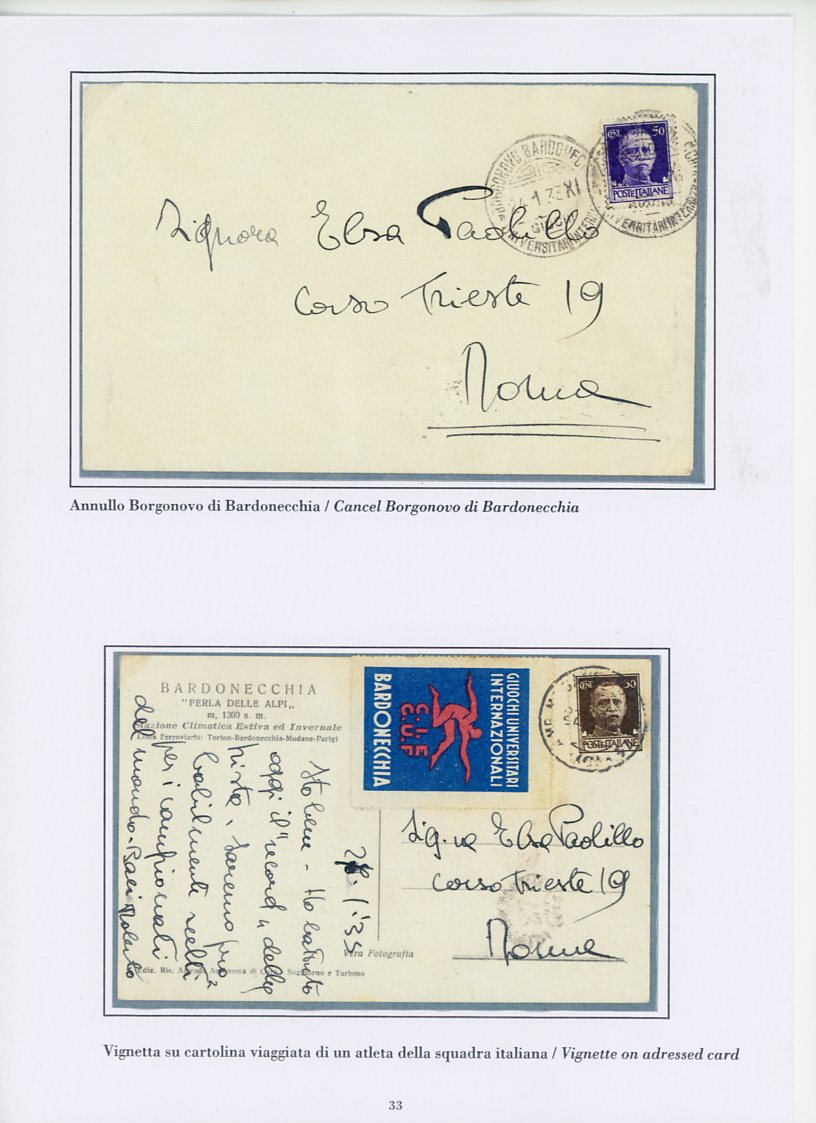 BORGONOVO BARDONECC
24.1.33 XI
GIUOCHI
UNIVERSITARI INTERNAZ
CENT. 50
POSTE ITALIANE
UNIVERSITARI INTERNAZ
Signora Elsa Paolillo
Corso Trieste 19
Roma
Annullo Borgonovo di Bardonecchia / Cancel Borgonovo di Bardonecchia
BARDONECCHIA
"PERLA DELLE ALPI„
m. 1300 s. m.
Stazione Climatica Estiva ed Invernale
Linea Ferroviaria: Torino-Bardonecchia-Modane-Parigi
GIUOCHI UNIVERSITARI
INTERNAZIONALI
C.I.E
G.U.F
BARDONECCHIA
CENT. 30
POSTE ITALIANE
Sto bene - Ho battuto
oggi il "record" della
pista. Saremo pro=
babilmente scelti
per i campionati
del mondo. Baci Roberto
Sig.na Elsa Paolillo
Corso Trieste 19
Roma
Vera Fotografia
Ediz. Ris. Azienda Autonoma di Cura Soggiorno e Turismo
Vignetta su cartolina viaggiata di un atleta della squadra italiana / Vignette on adressed card
33